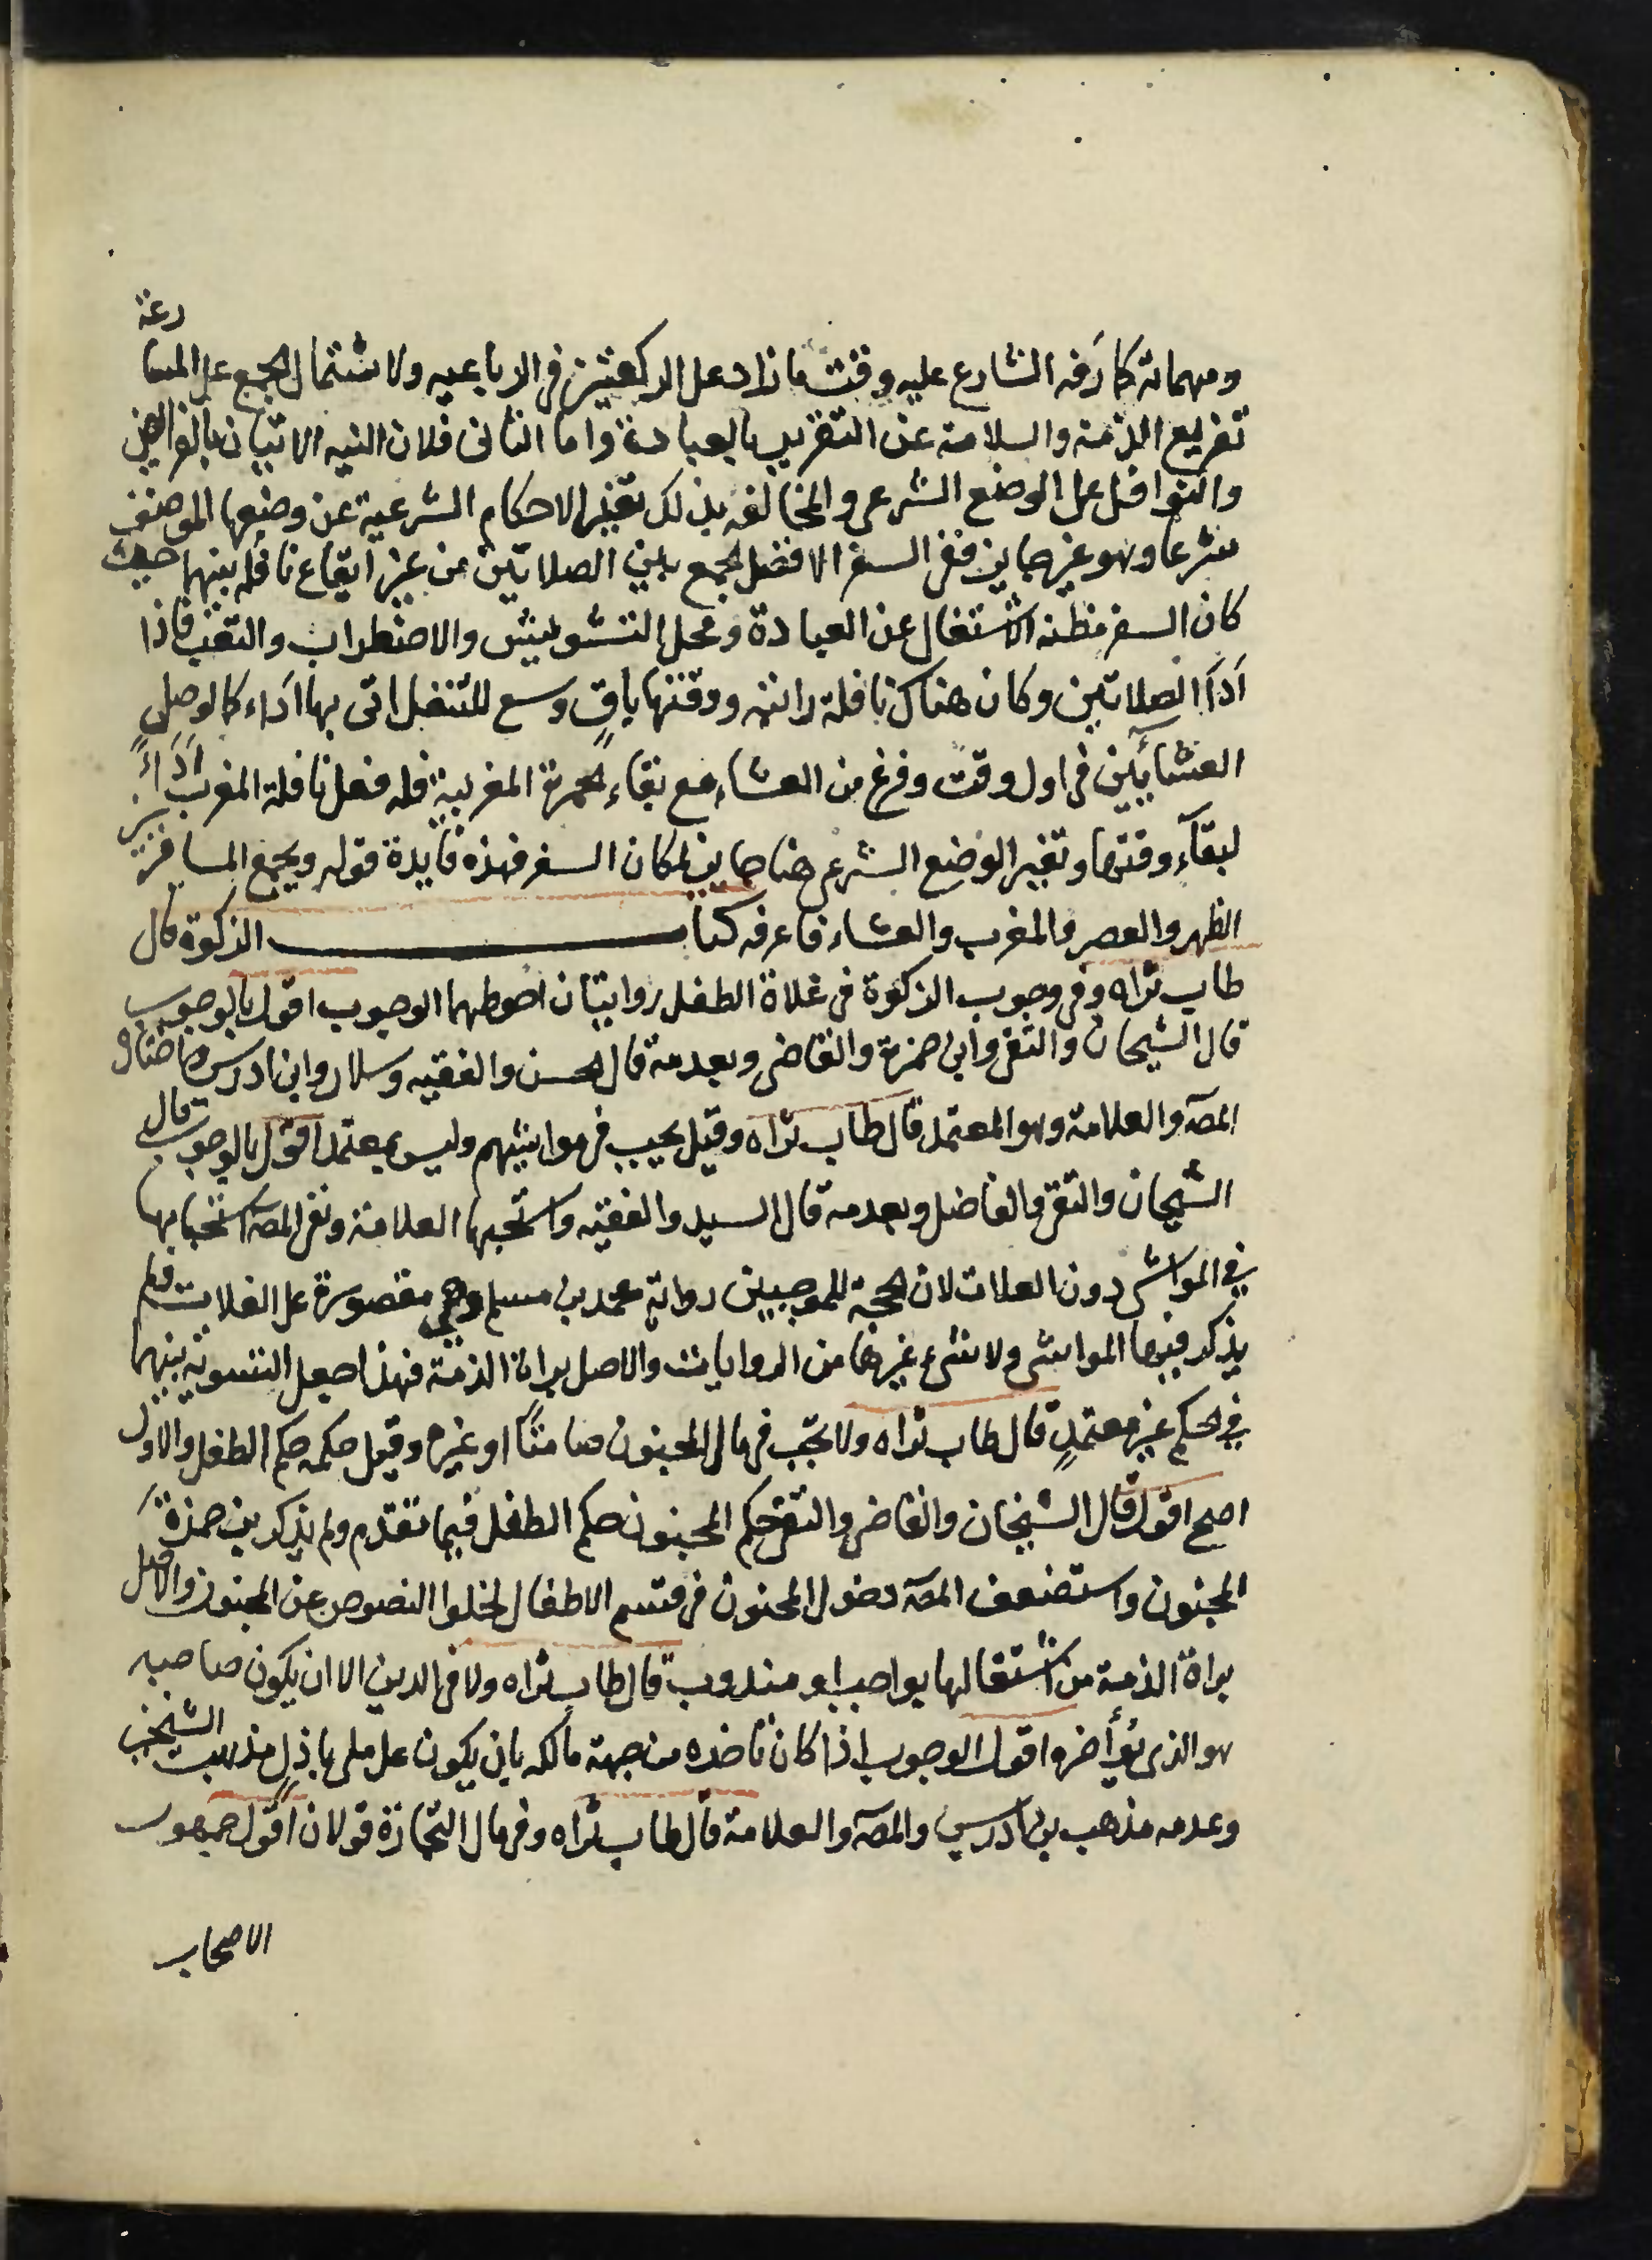 ومهماته كارفه الشارع عليه وقت ما زاد على الركعتين فى الرباعيه ولاشتمال الجمع على المسارعة
تفريع الذمة والسلامة عن التغرير بالعبادة واما الثانى فلان النيه الاتيان بالفرايض
والنوافل على الوضع الشرعى والمخالفه بذلك تغيير الاحكام الشرعية عن وضعها الموضف
شرعا وهو غير جايز ففى السفر الافضل الجمع بين الصلاتين من غير ايقاع نافله بينهما حيث
كان السفر مظنه الاشتغال عن العبادة ومحل التشويش والاضطراب والتعب فاذا
ادآ الصلاتين وكان هناك نافلة راتبه ووقتها باق وسع للتنفل اتى بها اداء كما لو صلى
العشائين فى اول وقت وفرغ من العشاء مع بقاء الحمرة المغربية فله فعل نافلة المغرب اداءً
لبقآء وقتها وتغير الوضع الشرعى هنا جايز لمكان السفر فهذه فايدة قوله ويجمع المسافر بين
الظهر والعصر والمغرب والعشاء فاعرفه كتاب الزكوة قال
طاب ثراه وفى وجوب الزكوة فى غلاة الطفل روايتان احوطهما الوجوب اقول بالوجوب
قال الشيخان والتقى وابن حمزة والقاضى وبعدمه قال الحسن والفقيه وسلار وابن ادريس واختاره
المصـ والعلامة وهو المعتمد قال طاب ثراه وقيل يجب فى مواشيهم وليس بمعتمد اقول بالوجوب قال
الشيخان والتقى والقاضى وبعدمه قال السيد والفقيه واستحبها العلامة ونفى المصـ استحبابها
فى المواشى دون الغلات لان الحجة للموجبين رواية محمد بن مسلم وهى مقصورة على الغلات فلم
يذكر فيها المواشى ولا شىء غيرها من الروايات والاصل براة الذمة فهذا جعل التسوية بينهما
فى الحكم غير معتمدٍ قال طاب ثراه ولا تجب فى مال المجنون صامتًا او غيره وقيل حكمه حكم الطفل والاول
اصح اقول قال الشيخان والقاضى والتقى حكم المجنون حكم الطفل فيما تقدم ولم يذكر بن حمزة
المجنون واستضعف المصـ دخول المجنون فى قسم الاطفال لخلوا النصوص عن المجنون والاصل
براة الذمة من اشتغالها بواجب او مندوب قال طاب ثراه ولا فى الدين الا ان يكون صاحبه
هو الذى يؤخره اقول الوجوب اذا كان تاخره من جهة مالكه بان يكون على ملى باذلٍ مذهب الشيخين
وعدمه مذهب بن ادريس والمصـ والعلامة قال طاب ثراه وفى مال التجارة قولان اقول جمهور
الاصحاب